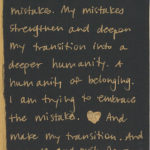 mistake. My mistakes
strengthen and deepen
my transition into a
deeper humanity. A
humanity of belonging.
I am trying to embrace
the mistake. And
make my transition. And